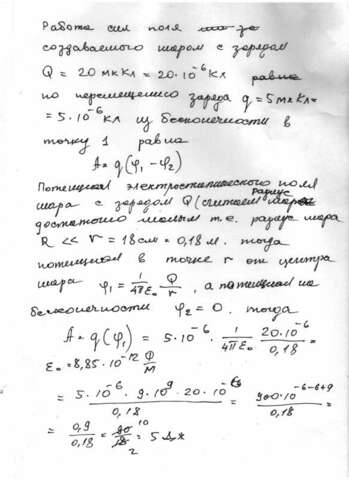 Работа сил поля
создаваемого шаром с зарядом
Q = 20 мкКл = 20·10⁻⁶ Кл равна
по перемещению заряда q = 5 мкКл =
= 5·10⁻⁶ Кл из бесконечности в
точку 1 равна
A = q(φ₁ - φ₂)
Потенциал электростатического поля
шара с зарядом Q (считаем радиус
достаточно малым т.е. радиус шара
R << r = 18 см = 0,18 м. тогда
потенциал в точке r от центра
шара φ₁ = 1/4πε₀ Q/r, а потенциал на
бесконечности φ₂ = 0. тогда
A = q(φ₁) = 5·10⁻⁶ · 1/4πε₀ 20·10⁻⁶/0,18 =
ε₀ = 8,85·10⁻¹² Ф/м
= 5·10⁻⁶ · 9·10⁹ · 20·10⁻⁶/0,18 = 900·10⁻⁶⁻⁶⁺⁹/0,18 =
= 0,9/0,18 = 10/2 = 5 Дж